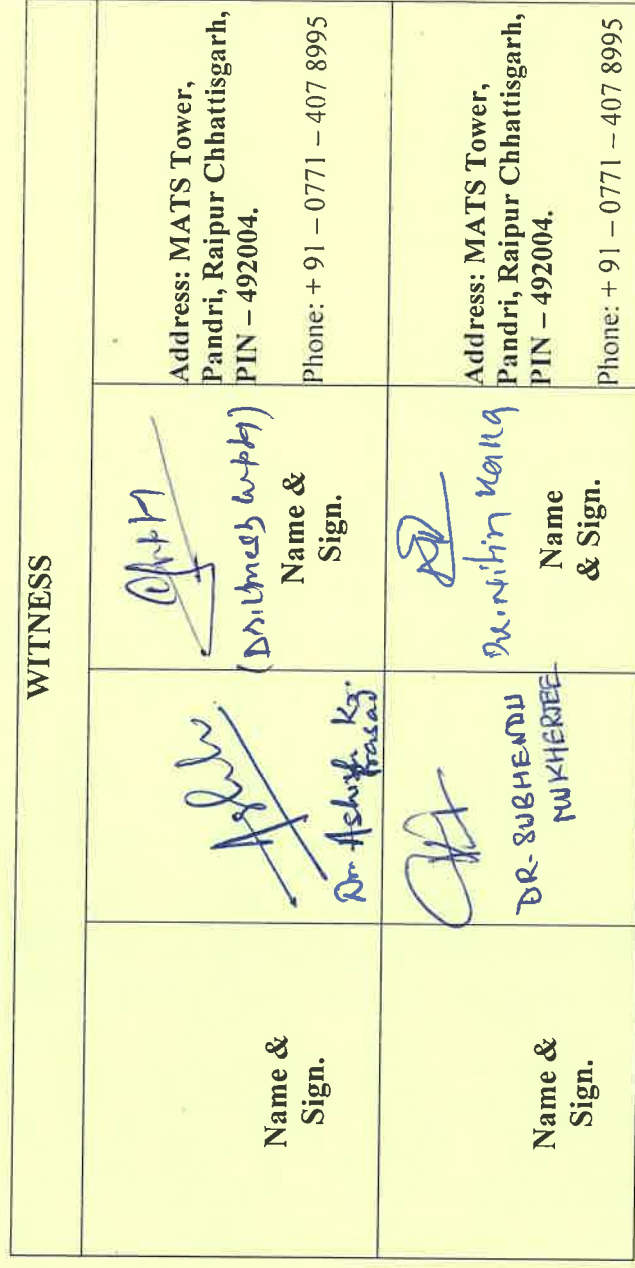 WITNESS
Name &
Sign.
Dr. Ashish Kr.
Prasad
Name &
Sign.
Address: MATS Tower,
Pandri, Raipur Chhattisgarh,
PIN – 492004.
Phone: + 91 – 0771 – 407 8995
Name &
Sign.
DR. SUBHENDU
MUKHERJEE
Dr. Nitin
Name
& Sign.
Address: MATS Tower,
Pandri, Raipur Chhattisgarh,
PIN – 492004.
Phone: + 91 – 0771 – 407 8995